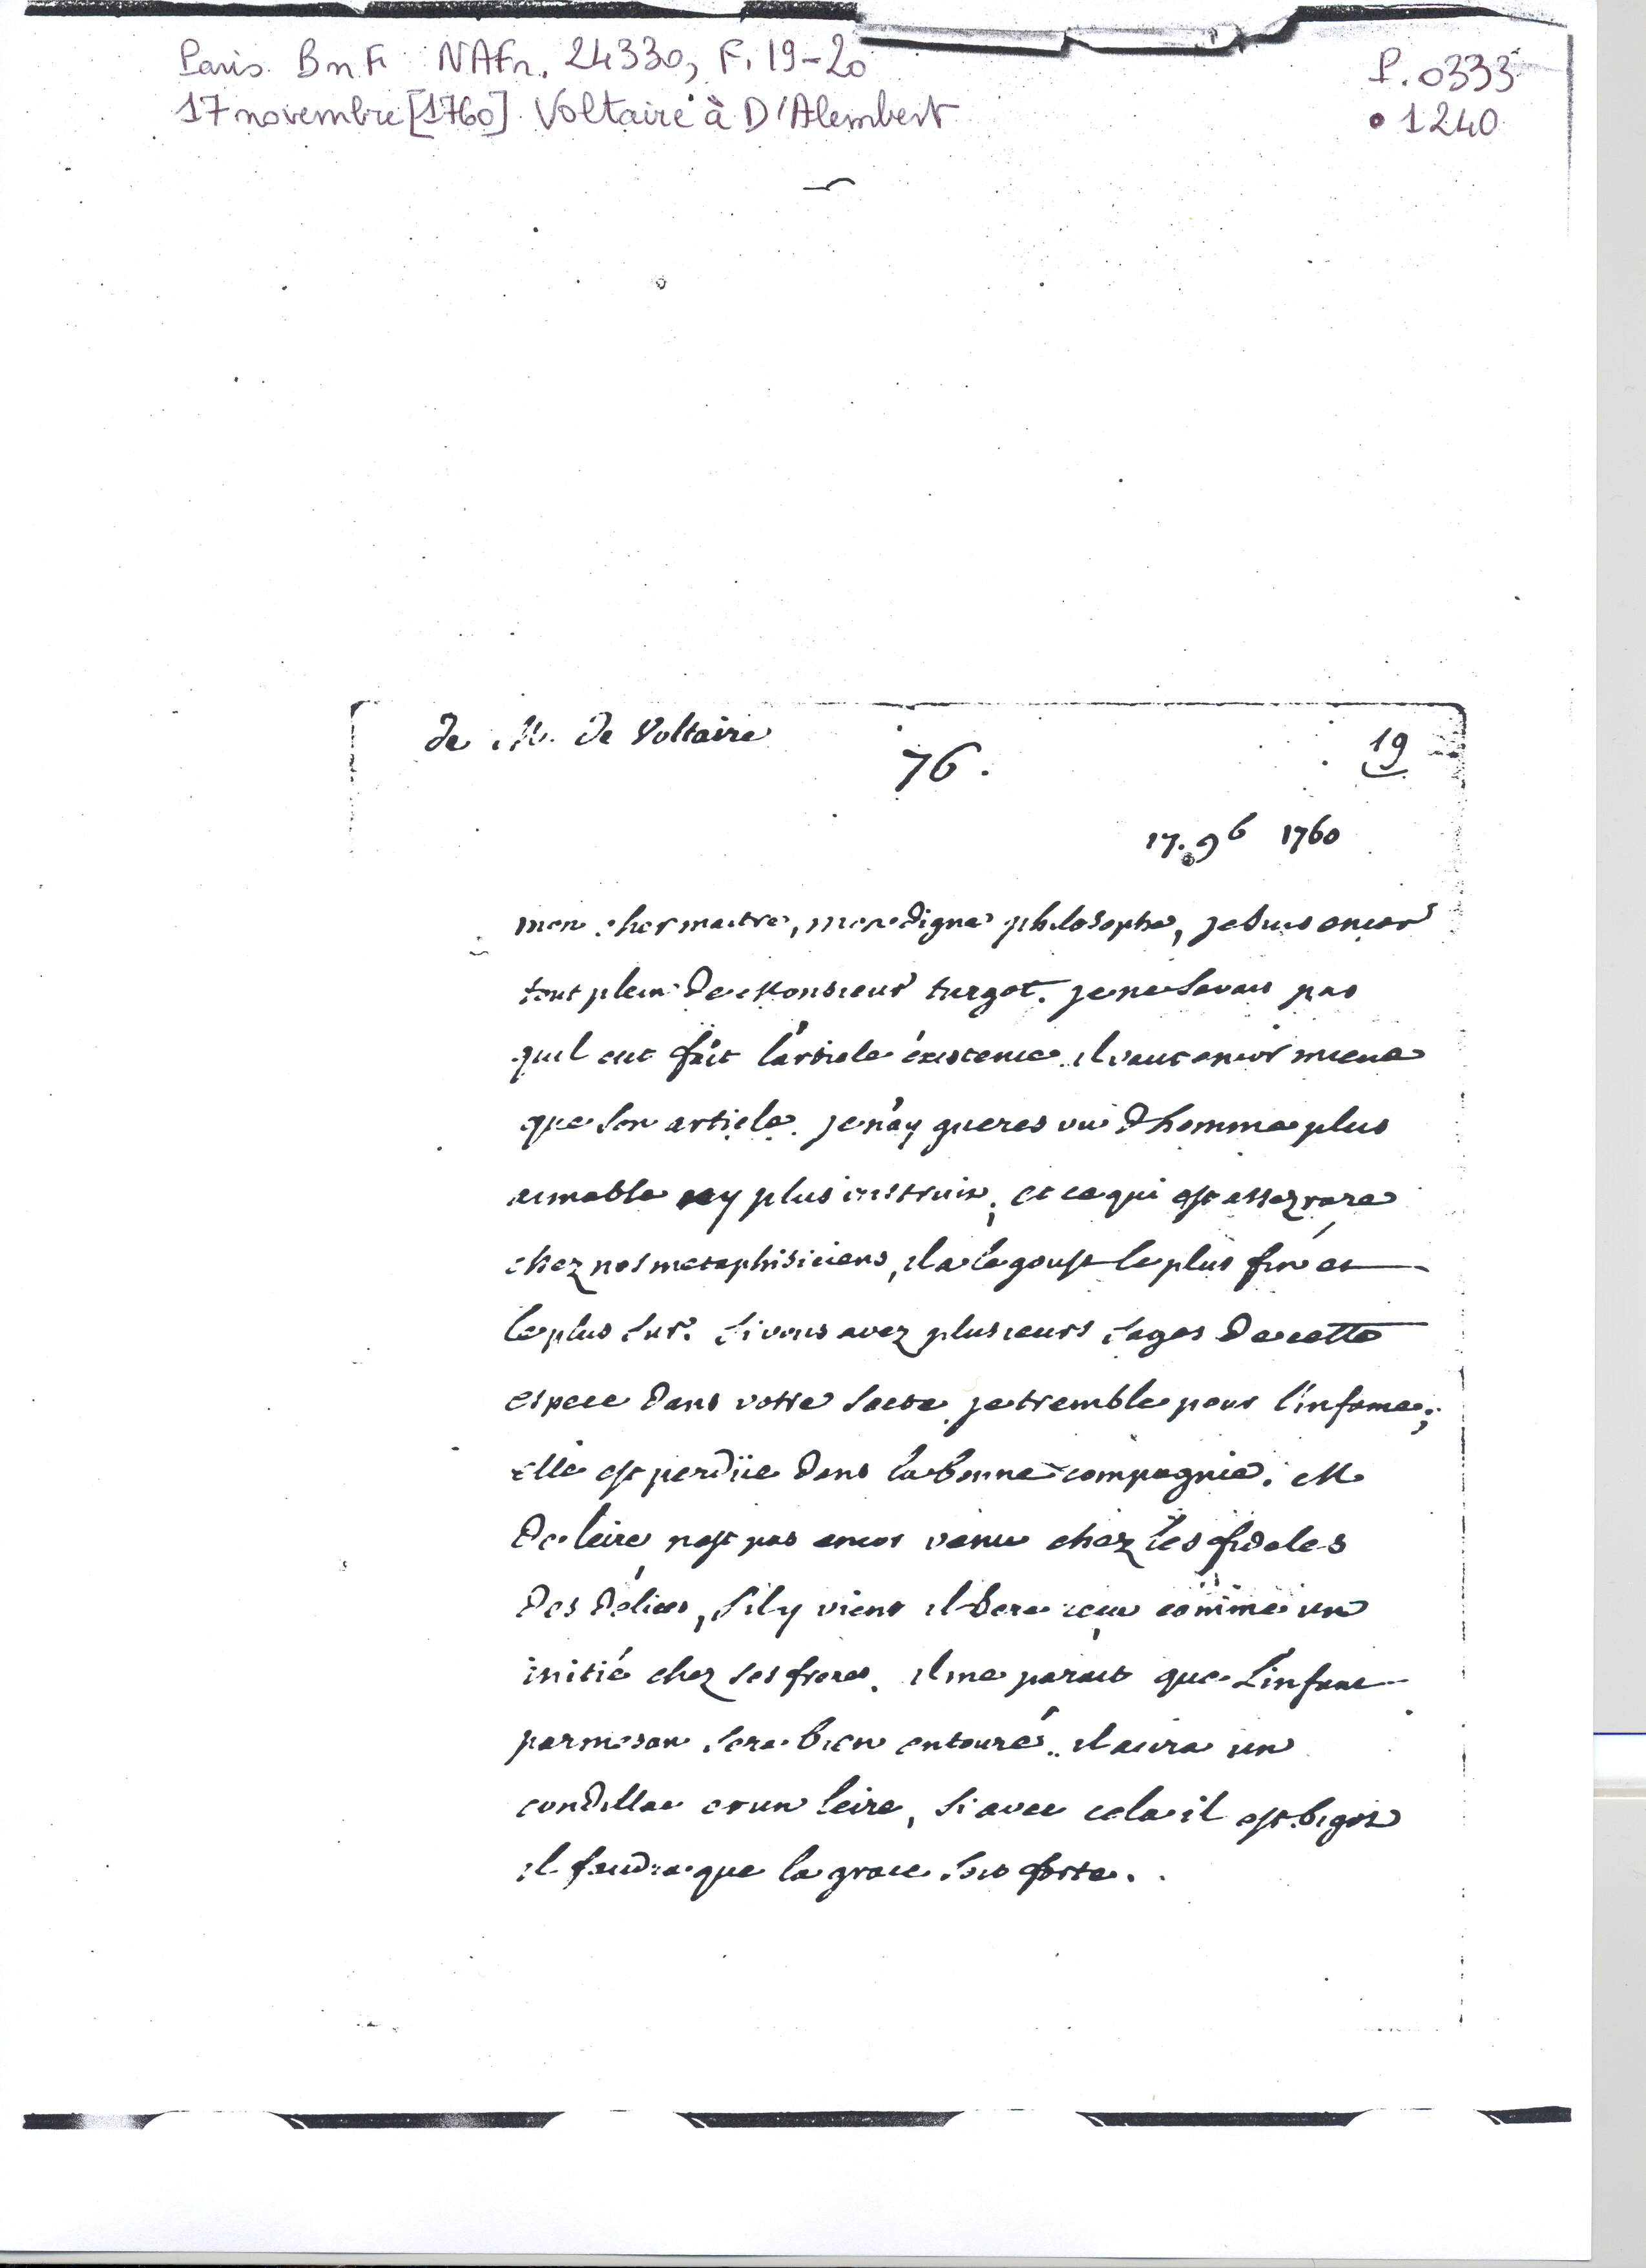 Paris BnF NAFr. 24330, F. 19-20
P. 0333
17 novembre [1760] Voltaire à D'Alembert
• 1240
de M. de Voltaire
76.
19
17. 9b 1760
mon cher maitre, mon digne philosophe, je suis encor
tout plein de Monsieur turgot. je ne savais pas
quil eut fait l'article éxistence. il vaut encor mieux
que son article. je n'ay gueres vu d'homme plus
aimable ny plus instruit; et ce qui est assez rare
chez nos metaphisiciens, il a le goust le plus fin et
le plus sur. si vous avez plusieurs sages de cette
espece dans votre secte je tremble pour l'infame;
elle est perdüe dans la bonne compagnie. M
de leire nest pas encor venu chez les fideles
des délices, s'il y vient il sera reçu comme un
initié chez ses freres. il me parait que Linfant
parmesan sera bien entouré. il aura un
condillac et un leire, si avec cela il est bigot
il faudra que la grace soit forte.